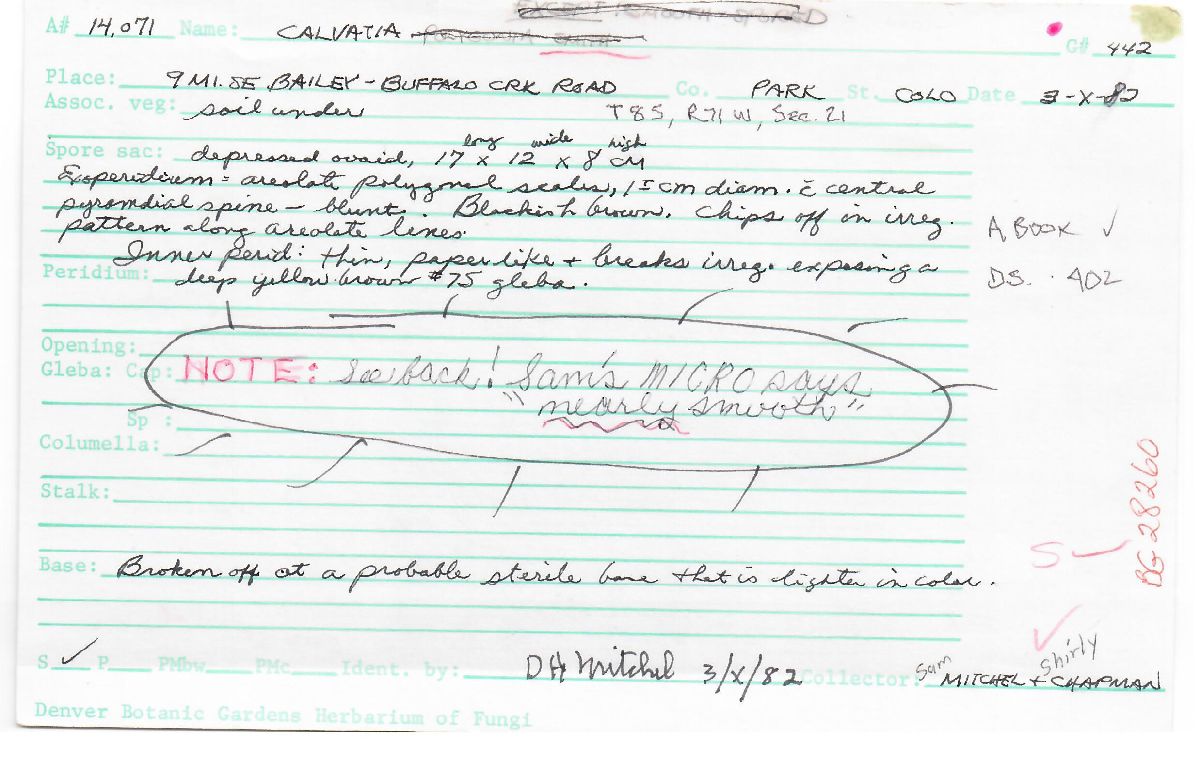 EXCEPT SMOOTH SPORED
A# 14,071 Name: CALVATIA G# 442
Place: 9 MI. SE BAILEY - BUFFALO CRK ROAD Co. PARK St. COLO Date 3-X-82
Assoc. veg: soil under T8S, R71W, Sec. 21
long wide high
Spore sac: depressed ovoid, 17 x 12 x 8 cm
Exoperidium = areolate polygonal scales, 1± cm diam. c̄ central
pyramdial spine - blunt. Blackish brown. Chips off in irreg.
pattern along areolate lines.
A, BOOK ✓
Inner perid: thin, paper like + breaks irreg. exposing a
Peridium: deep yellow brown #75 gleba.
DS. 402
Opening:
Gleba: Cap: NOTE: See back! Sam's MICRO says
"nearly smooth"
Sp :
Columella:
Stalk:
BG 28260
S ✓
Base: Broken off at a probable sterile base that is lighter in color.
S ✓ P PMbw PMc Ident. by: DH Mitchel 3/X/82 Collector: Sam MITCHEL + Shirly CHAPMAN
Denver Botanic Gardens Herbarium of Fungi